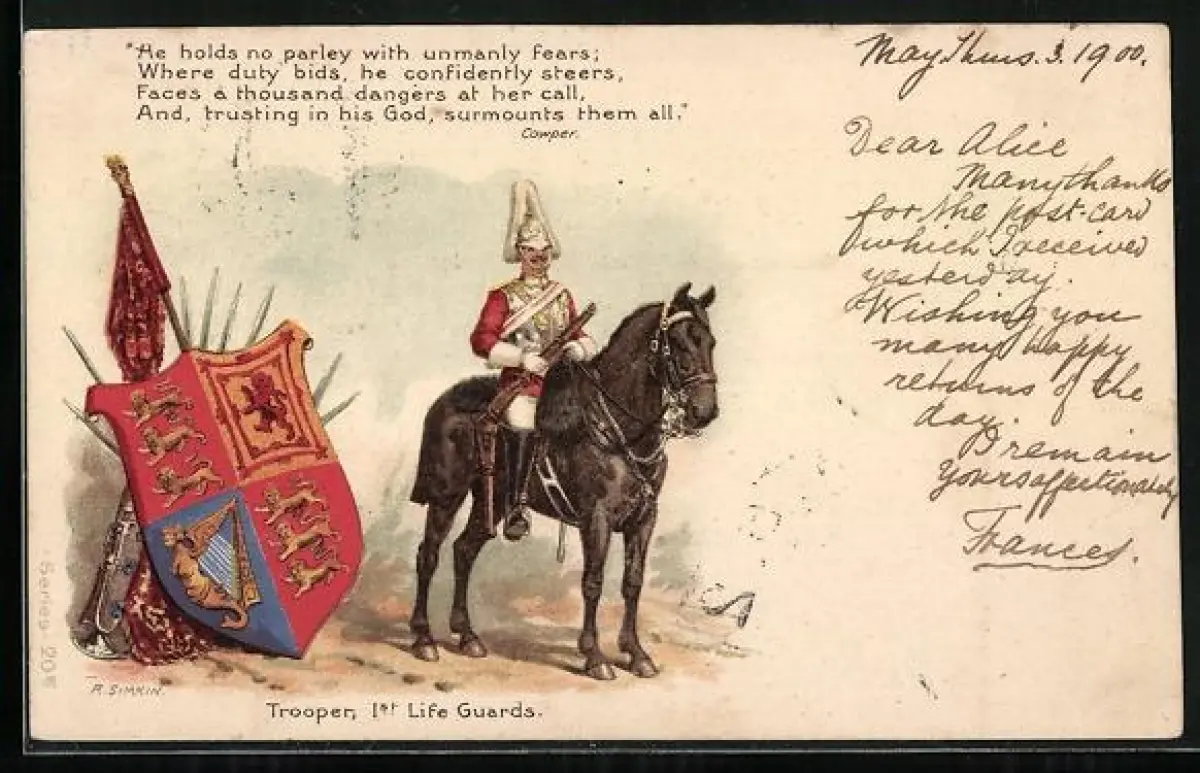 "He holds no parley with unmanly fears;
Where duty bids, he confidently steers,
Faces a thousand dangers at her call,
And, trusting in his God, surmounts them all."
Cowper.
May Thurs. 3. 1900.
Dear Alice
Many thanks
for the post-card
which I received
yesterday.
Wishing you
many happy
returns of the
day.
I remain
yours affectionately
Frances.
Series 20
R. SIMKIN.
Trooper, 1st Life Guards.